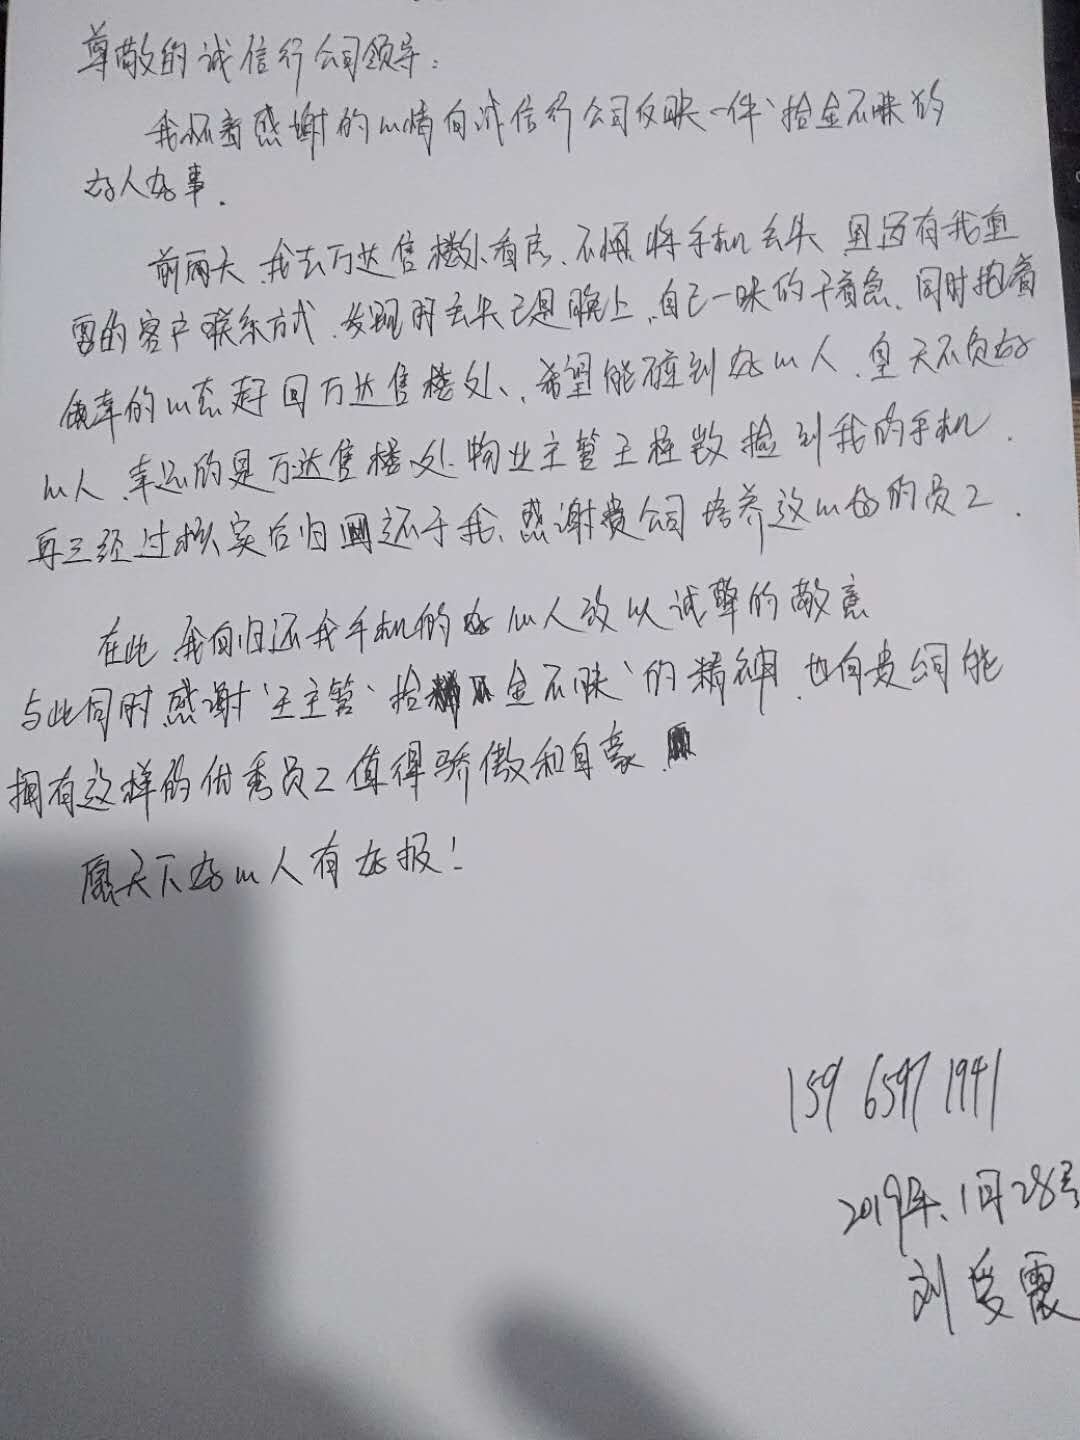 尊敬的诚信行公司领导：
我怀着感谢的心情向诚信行公司反映一件、拾金不昧的
好人好事.
前两天、我去万达售楼处看房、不慎将手机丢失 里面有我重
要的客户联系方式、发现时丢失已是晚上、自己一味的干着急、同时抱着
侥幸的心态赶回万达售楼处、希望能碰到好心人、皇天不负好
心人、幸运的是万达售楼处物业主管王 捡到我的手机.
再三经过核实后归还于我、感谢贵公司培养这么好的员工.
在此、我向归还我手机的好心人致以诚挚的敬意
与此同时感谢'王主管'拾金不昧'的精神、也向贵公司能
拥有这样的优秀员工值得骄傲和自豪.
愿天下好心人有好报！
159 6597 1941
2019年、1月28号
刘爱震